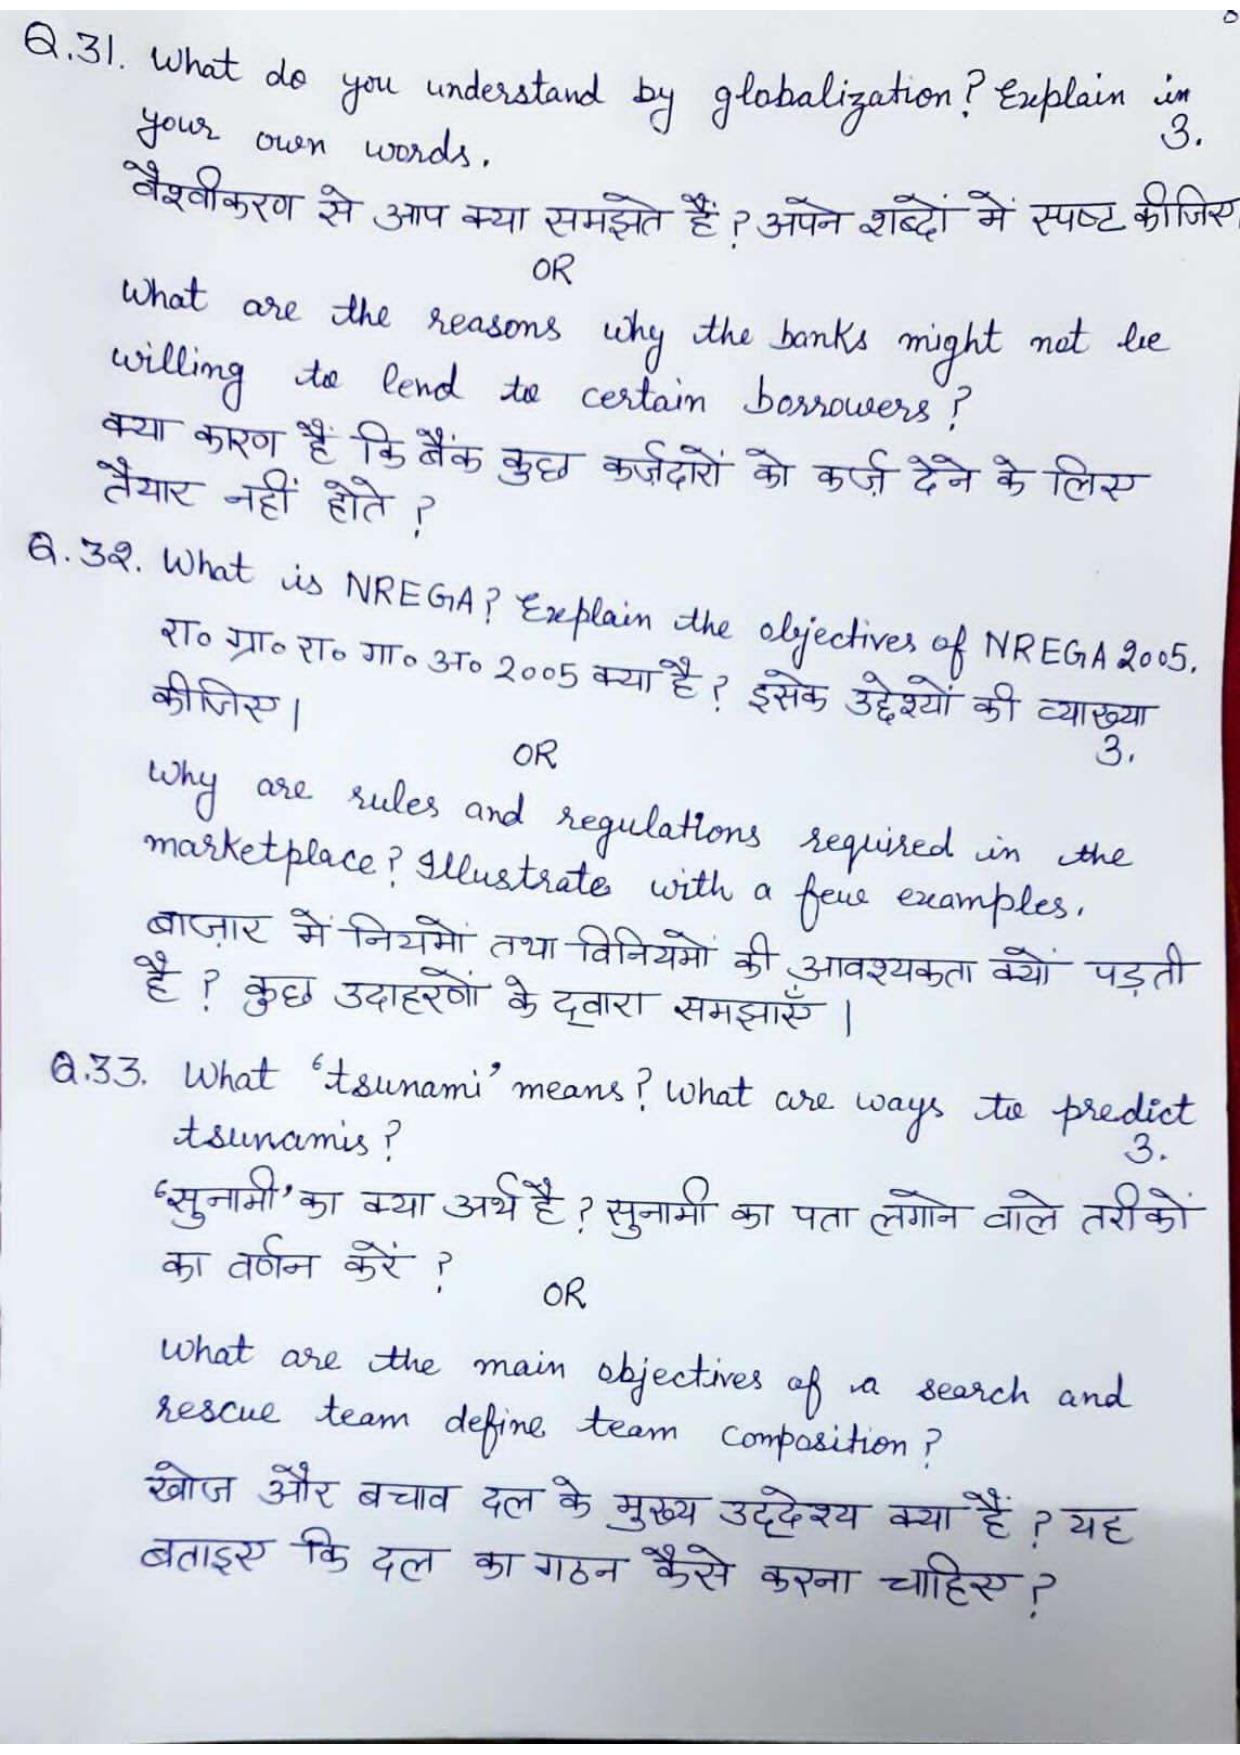 Q.31. What do you understand by globalization? Explain in
your own words. 3.
वैश्वीकरण से आप क्या समझते हैं? अपने शब्दों में स्पष्ट कीजिए
OR
What are the reasons why the banks might not be
willing to lend to certain borrowers?
क्या कारण हैं कि बैंक कुछ कर्ज़दारों को कर्ज़ देने के लिए
तैयार नहीं होते?
Q.32. What is NREGA? Explain the objectives of NREGA 2005.
रा० ग्रा० रा० गा० अ० 2005 क्या है? इसके उद्देश्यों की व्याख्या
कीजिए। 3.
OR
Why are rules and regulations required in the
marketplace? Illustrate with a few examples.
बाज़ार में नियमों तथा विनियमों की आवश्यकता क्यों पड़ती
है? कुछ उदाहरणों के द्वारा समझाएँ।
Q.33. What 'tsunami' means? What are ways to predict
tsunamis? 3.
'सुनामी' का क्या अर्थ है? सुनामी का पता लगाने वाले तरीकों
का वर्णन करें?
OR
What are the main objectives of a search and
rescue team define team composition?
खोज और बचाव दल के मुख्य उद्देश्य क्या हैं? यह
बताइए कि दल का गठन कैसे करना चाहिए?